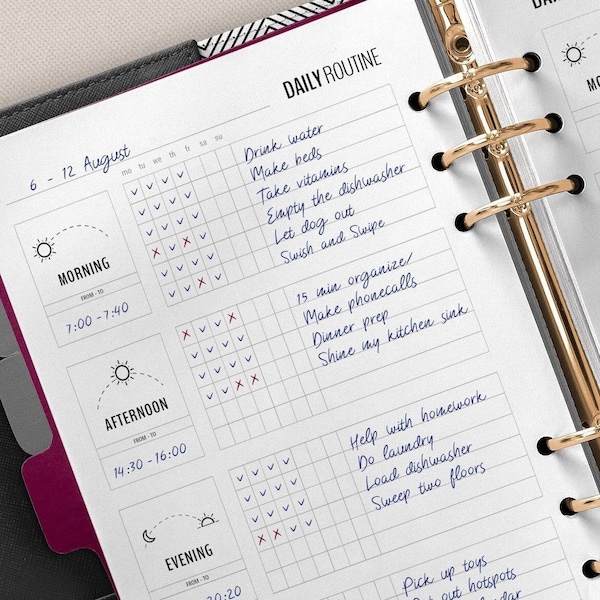 DAILY ROUTINE
6 - 12 August
mo tu we th fr sa su
Drink water
Make beds
Take vitamins
Empty the dishwasher
Let dog out
Swish and Swipe
MORNING
FROM - TO
7:00 - 7:40
15 min organize/
Make phonecalls
Dinner prep
Shine my kitchen sink
AFTERNOON
FROM - TO
14:30 - 16:00
Help with homework
Do laundry
Load dishwasher
Sweep two floors
EVENING
FROM - TO
20:20
Pick up toys
out hotspots
MO